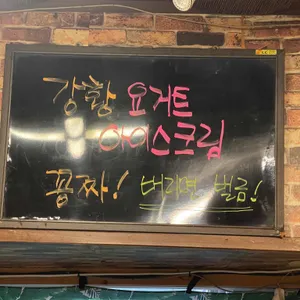 강황 요거트
아이스크림
꽁짜! 버리면 벌금!